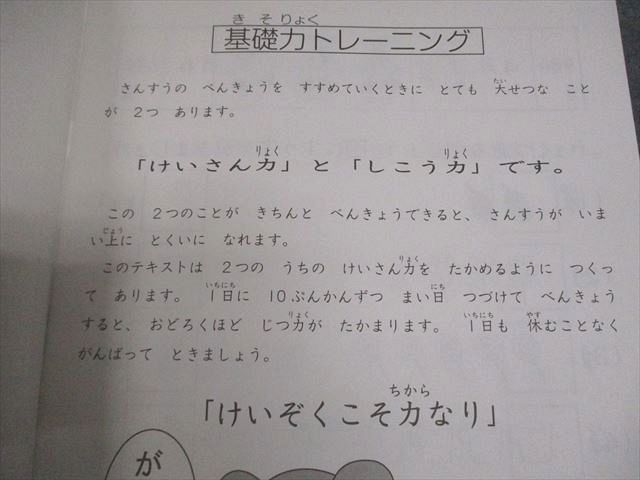 きそりょく
基礎力トレーニング
さんすうの べんきょうを すすめていくときに とても 大せつな こと
が 2つ あります。
「けいさん力」と「しこう力」です。
この 2つのことが きちんと べんきょうできると、さんすうが いま
い上に とくいに なれます。
このテキストは 2つの うちの けいさん力を たかめるように つくっ
て あります。 1日に 10ぷんかんずつ まい日 つづけて べんきょう
すると、おどろくほど じつ力が たかまります。 1日も 休むことなく
がんばって ときましょう。
「けいぞくこそ力なり」
が